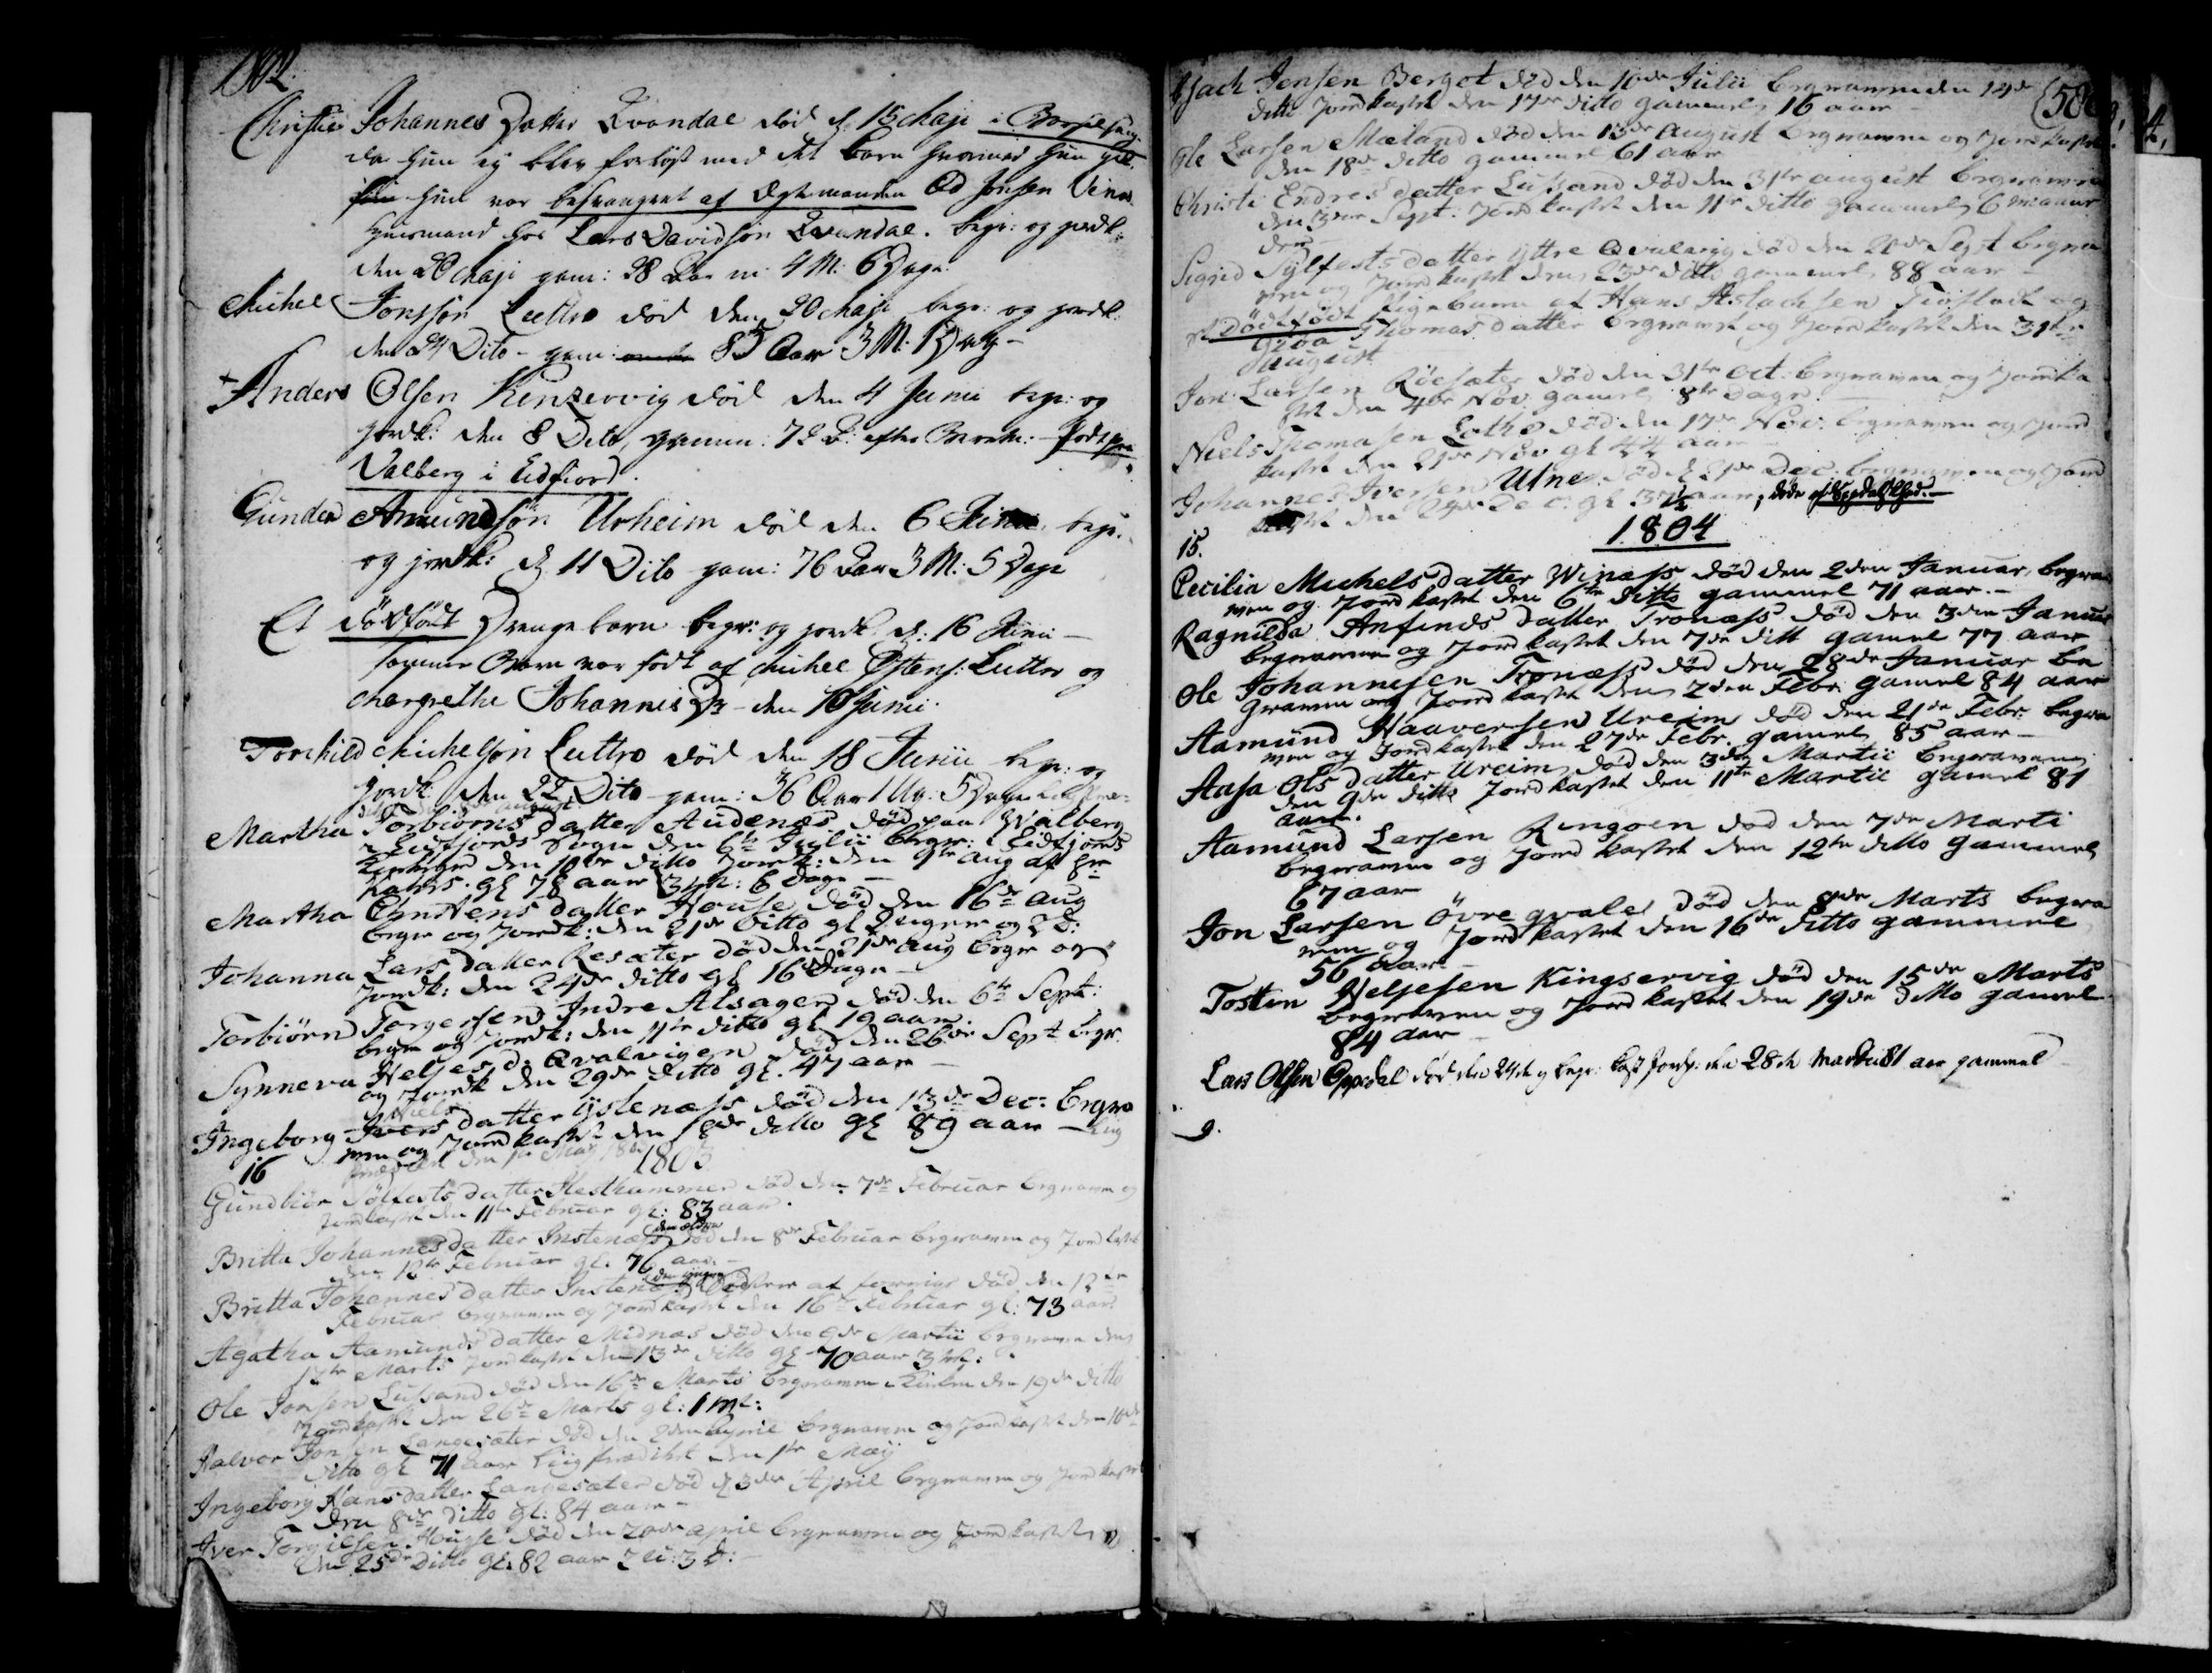 1802
Christie Johannes Datter Qvandal død d. 15 Maji i Barselseng
da hun ej blev forløst med det Barn hvormed hun gik
hun var besvangret af Ægtemanden Od Jonsen Vinæs
huusmand hos Lars Davidsøn Qvandal. begr: og jordk:
den 20 Maji gam: 28 Aar m: 4 M: 6 Dage
Michel Jonssøn Luttro død den 20 Maji begr: og jordk:
den 24 Dito - gam: 83 Aar 3 M: 1 Dag -
Anders Olsen Kinzervig død den 4 Junii begr: og
jordk: den 8 Dito, gamm: 72 A: født paa
Valberg i Eidfiord.
Gunder Amundsøn Urheim død den 6 Junii begr:
og jordk: d. 11 Dito gam: 76 Aar 3 M: 5 Dage
Et dødfødt Drengebarn begr: og jordk: d: 16 Junii -
samme Barn var født af Michel Østens: Luttro og
Margrethe Johannis D: - den 10 Junii.
Torchild Michelsøn Luttro død den 18 Junii begr: og
jordk: den 22 Dito - gam: 36 Aar 1 Ug: 5 Dage
Martha Torbiørns datter Audenæs død paa Walberg
i Eidfiords Sogn den 6te Julii begr: Eidfiords
Kirke den 10de ditto Jordk: den aug af Hr
gl 78 aar 3 M: 6 Dage -
Martha Christens datter House død den 16de aug
begr og Jordk: den 21de ditto gl 2 uger og 2 D:
Johanna Lars datter Resæter død den 21de aug begr og
Jordk: den 24de ditto gl 16 Dage -
Torbiørn Torgersen Indre Alsager død den 6te Sept:
begr og Jordk: den 11te ditto gl 19 aar.
Synneva Heljes d: Qvalvigen død den 26de Sept begr
og Jordk den 29de ditto gl. 47 aar -
Niels
Ingeborg Ivers datter Ystenæss død den 13de Dec: begra
ven og Jordkastet den 18de ditto gl 89 aar - Liig
16 præd den 1te Maj 1803
Gundbiør Sølfests datter Hesthammer død den 7de Februar begraven og
Jordkastet den 11te Februar gl: 83 aar.
den ældre
Britta Johannes datter Instenæs død den 8de Februar begraven og Jordkastet
den 12te Februar gl. 76 aar -
den yngre
Britta Johannes datter Instenæs Søster af forrige død den 12te
Februar begraven og Jordkastet den 16de Februar gl: 73 aar
Agatha Aamunds datter Midnæs død den 9de Martii begraven den
12te Marts Jordkastet den 13de ditto gl 70 aar 3 M:
Ole Jonsen Lussand død den 16de Marts begraven den 19de ditto
Jordkastet den 26de Marts gl: 1 M:
Halvor Jonsen Langesæter død den 2den April begraven og Jordkastet den 10de
ditto gl 71 aar Liigprædiket den 1te Maij
Ingeborg Hans datter Langesæter død d. 3de April begraven og Jordkastet
den 8de ditto gl: 84 aar -
Iver Torgilsen Housse død den 20de April begraven og Jordkastet
den 25de ditto gl. 82 aar 2 U: 3 D:
Isach Jensen Berget død den 10de Julii begraven den 14de
ditto Jordkastet den 17de ditto gammel 16 aar -
(500
Ole Larsen Mæland død den 13de August begraven og Jordkastet
den 18de ditto gammel 61 aar
Christi Endres datter Lussand død den 31te august begraven
den 3de Sept: Jordkastet den 11te ditto gammel 6 maane
der -
Sigrid Sylfests datter Yttre Qvalvig død den 20de Sept begra
ven og Jordkastet den 23de ditto gammel 88 aar -
et dødfødt Pigebarn af Hans Aslachsen Tiøflaat og
Gioa Thomas datter begravet og Jordkastet den 31te
August
Jon Larsen Røesæter død den 31te Oct: begraven og Jordka
stet den 4de Nov gamel 8te Dage. -
Niels Thomasen Lothe død den 17de Nov. begraven og Jord
kastet den 21de Nov gl 44 aar
Johannes Iversen Utne død d 21de Dec. begraven og Jord
kastet den 29de Dec: gl 37½ aar,
15.
1804
Cecilia Michels datter Winæss død den 2den Januar, begra
ven og Jordkastet den 6te ditto gammel 71 aar. -
Ragnilda Anfinds datter Tronæss død den 3die Januar
begraven og Jordkastet den 7de ditt gamel 77 aar
Ole Johannesen Tronæss død den 28de Januar be
graven og Jordkastet den 2den Febr gamel 84 aar
Aamund Haaversen Ureim død den 21de Febr: begra
ven og Jordkastet den 27de Febr. gamel 85 aar -
Aasa Ols datter Ureim død den 3die Martii begraven
den 9de ditto Jordkastet den 11te Martii gamel 81
aar.
Aamund Larsen Ringøen død den 7de Marti
begraven og Jordkastet den 12te ditto gammel
67 aar
Jon Larsen Øvre qvale død den 8de Marts begra
ven og Jordkastet den 16de ditto gammel
56 aar -
Tosten Heljesen Kingservig død den 15de Marts
begraven og Jordkastet den 19de ditto gamel
84 aar -
Lars Olsen Oppedal død den 24de begr: den 28de Martii 81 aar gammel
9.